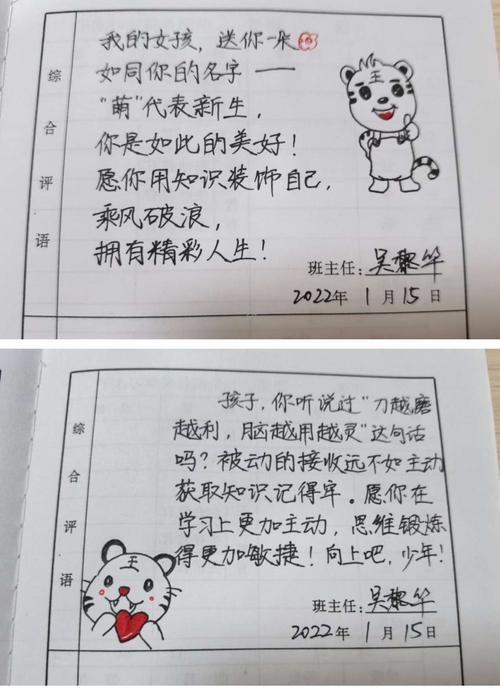 综合评语
我的女孩，送你一朵
如同你的名字——
“萌”代表新生，
你是如此的美好！
愿你用知识装饰自己，
乘风破浪，
拥有精彩人生！
王
班主任：吴黎华
2022年 1月15日
综合评语
孩子，你听说过“刀越磨
越利，脑越用越灵”这句话
吗？被动的接收远不如主动
获取知识记得牢。愿你在
学习上更加主动，思维锻炼
得更加敏捷！向上吧，少年！
王
班主任：吴黎华
2022年 1月15日